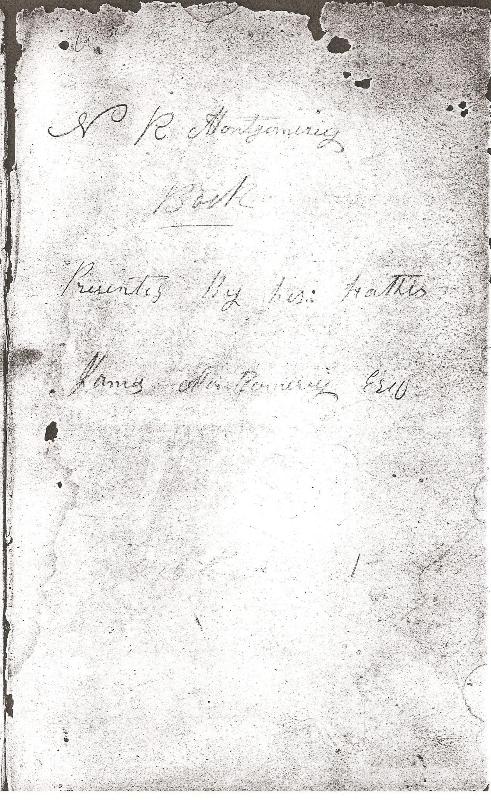 N R Montgomerey
Book
Presented By his Father
James Montgomerey Esq